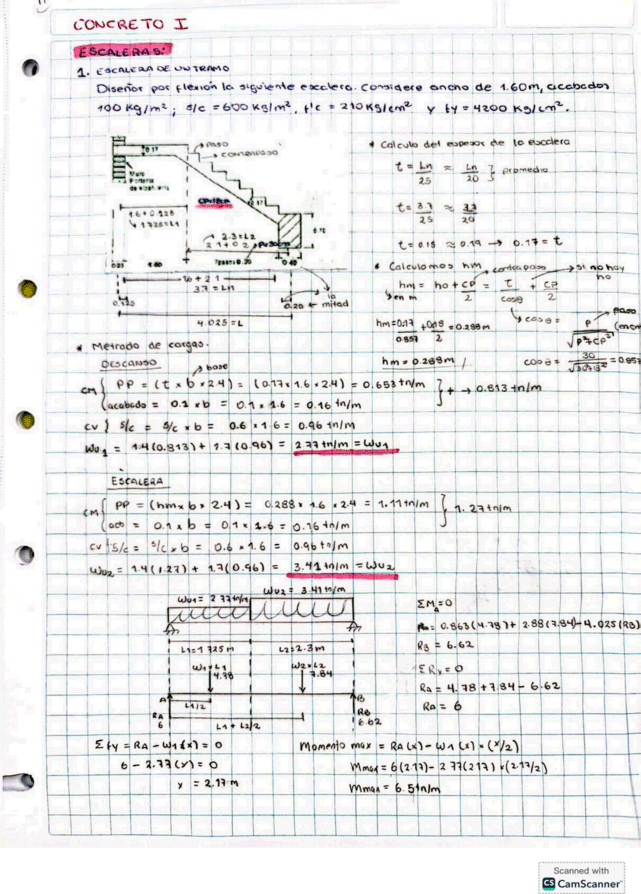 CONCRETO I
ESCALERAS:
1. ESCALERA DE UN TRAMO
Diseñar por flexión la siguiente escalera. Considere ancho de 1.60m, acabados
100 kg/m²; s/c = 600 kg/m², f'c = 210 kg/cm² y fy = 4200 kg/cm².
PASO
CONTRAPASO
0.17
Muro
Portante
de albañilería
0.17
1.6+0.125
1.725=L1
2.3=L2
2.1+0.2
0.25
1.60
0.40
1.6 + 2.1
3.7 = Ln
0.125
0.20 ← la mitad
4.025 = L
* Calculo del espesor de la escalera
t = Ln/25 ≈ Ln/20 } promedio
t = 3.7/25 ≈ 3.7/20
t = 0.15 ≈ 0.19 → 0.17 = t
* Calculamos hm
contrapaso
si no hay ho
hm = ho + CP/2 = t/cosθ + CP/2
en m
cosθ = P/√P²+CP²
paso
hm = 0.17/0.857 + 0.18/2 = 0.288m
hm = 0.288m
cosθ = 30/√30²+18² = 0.857
* Metrado de cargas.
DESCANSO
base
CM { PP = (t x b x 2.4) = (0.17 x 1.6 x 2.4) = 0.653 tn/m } + → 0.813 tn/m
acabado = 0.1 x b = 0.1 x 1.6 = 0.16 tn/m
CV } s/c = s/c x b = 0.6 x 1.6 = 0.96 tn/m
Wu1 = 1.4(0.813) + 1.7(0.96) = 2.77 tn/m = Wu1
ESCALERA
CM { PP = (hm x b x 2.4) = 0.288 x 1.6 x 2.4 = 1.11 tn/m } 1.27 tn/m
acb = 0.1 x b = 0.1 x 1.6 = 0.16 tn/m
CV { s/c = s/c x b = 0.6 x 1.6 = 0.96 tn/m
Wu2 = 1.4(1.27) + 1.7(0.96) = 3.41 tn/m = Wu2
Wu1 = 2.77 tn/m
Wu2 = 3.41 tn/m
L1=1.725m
L2=2.3m
W1xL1
4.78
W2xL2
7.84
A
B
L1/2
L1 + L2/2
RA
6
RB
6.62
ΣMA=0
0.863(4.78) + 2.88(7.84) - 4.025(RB)
RB = 6.62
ΣRy = 0
RA = 4.78 + 7.84 - 6.62
RA = 6
Σfy = RA - W1(x) = 0
6 - 2.77(x) = 0
x = 2.17 m
Momento max = RA(x) - W1(x) x (x/2)
Mmax = 6(2.17) - 2.77(2.17) x (2.17/2)
Mmax = 6.5 tn/m
Scanned with
CS CamScanner